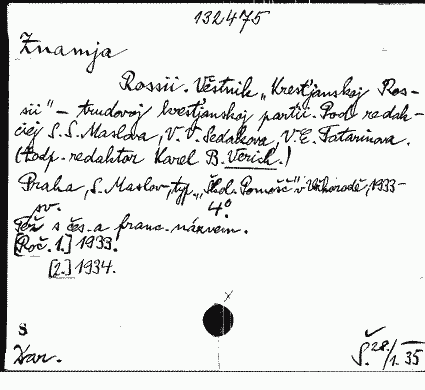 132475
Znamja
Rossii. Věstnik „Kresťjanskoj Ros-
sii" – trudovoj kresťjanskoj partii. Pod redak-
ciej S. S. Maslova, V. T. Sedakova, V. E. Tatarinova.
(Zodp. redaktor Karel B. Verich.)
Praha, S. Maslov, typ. „Škol. Pomošč" v Užhorodě, 1933–
sv. 4°
Též s čes. a franc. názvem.
[Roč. 1.] 1933.
[2.] 1934.
x
S
Dar.
Š. 28/1. 35